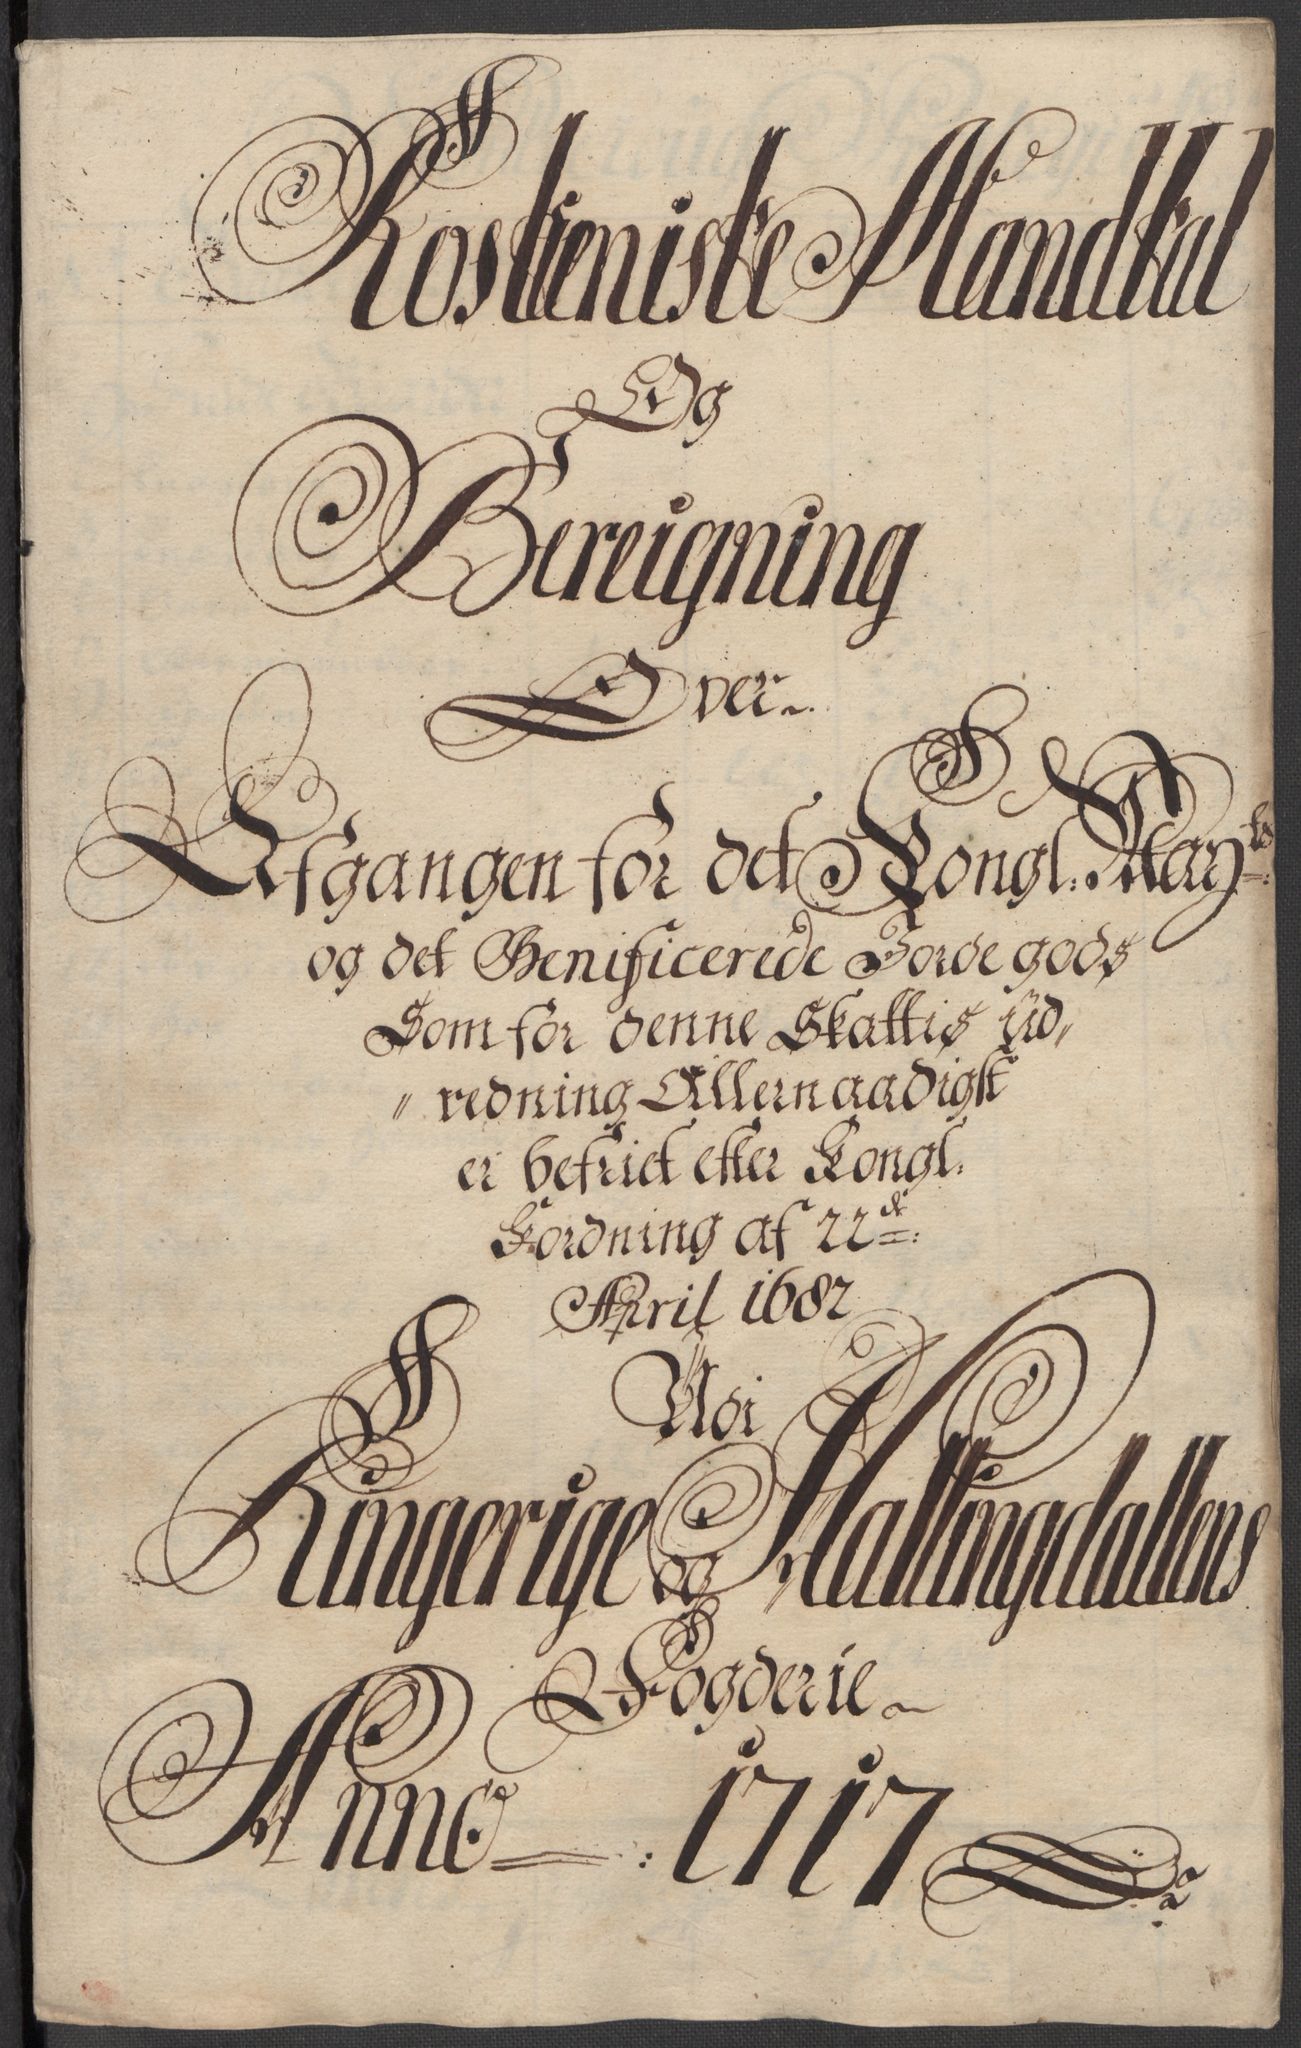 Rostieniste Mandtal
Og
Bereigning
Over
Afgangen for det Kongl: May<sup>ts</sup>:
og det Benificerede Jordegods
Som for denne Skattis Ud„
„redning Allernaadigst
er befriet efter Kongl.
Fordning af 22<sup>de</sup>:
April 1682
Udi
Ringerige og Hallingdallens
Fogderie
Anno : 1717